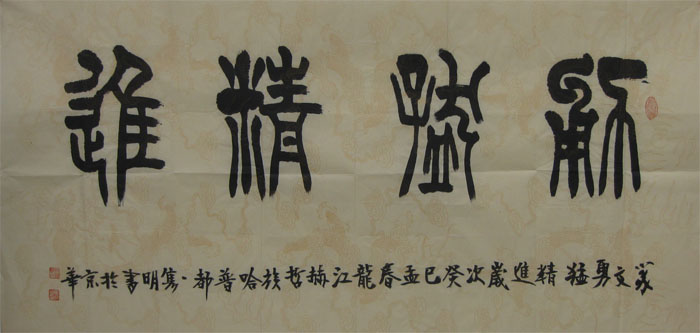 勇猛精進
篆文勇猛精進歲次癸巳孟春龍江赫哲族哈普都·隽明書於京華